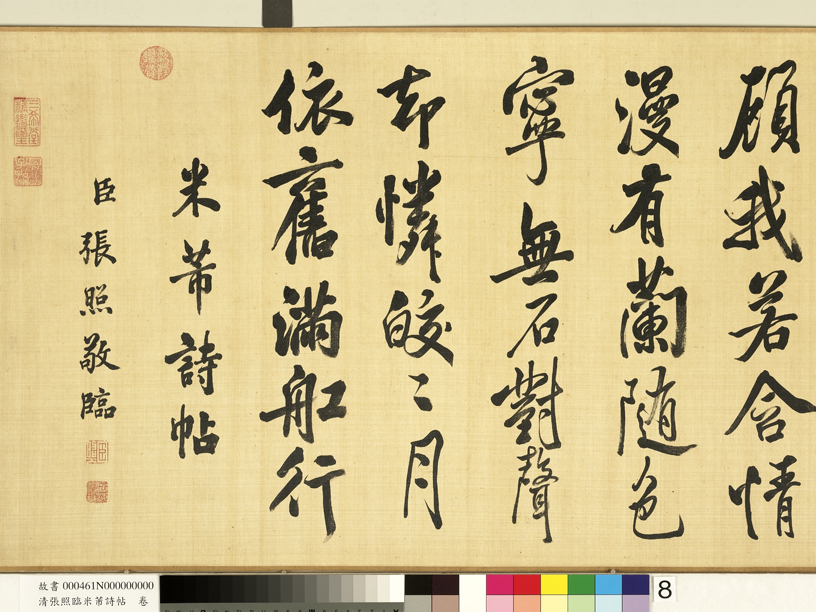 顧我若含情
漫有蘭随色
寧無石對聲
却憐皎〻月
依舊滿舩行
米芾詩帖
臣張照敬臨
故書 000461N000000000
清張照臨米芾詩帖 卷
8